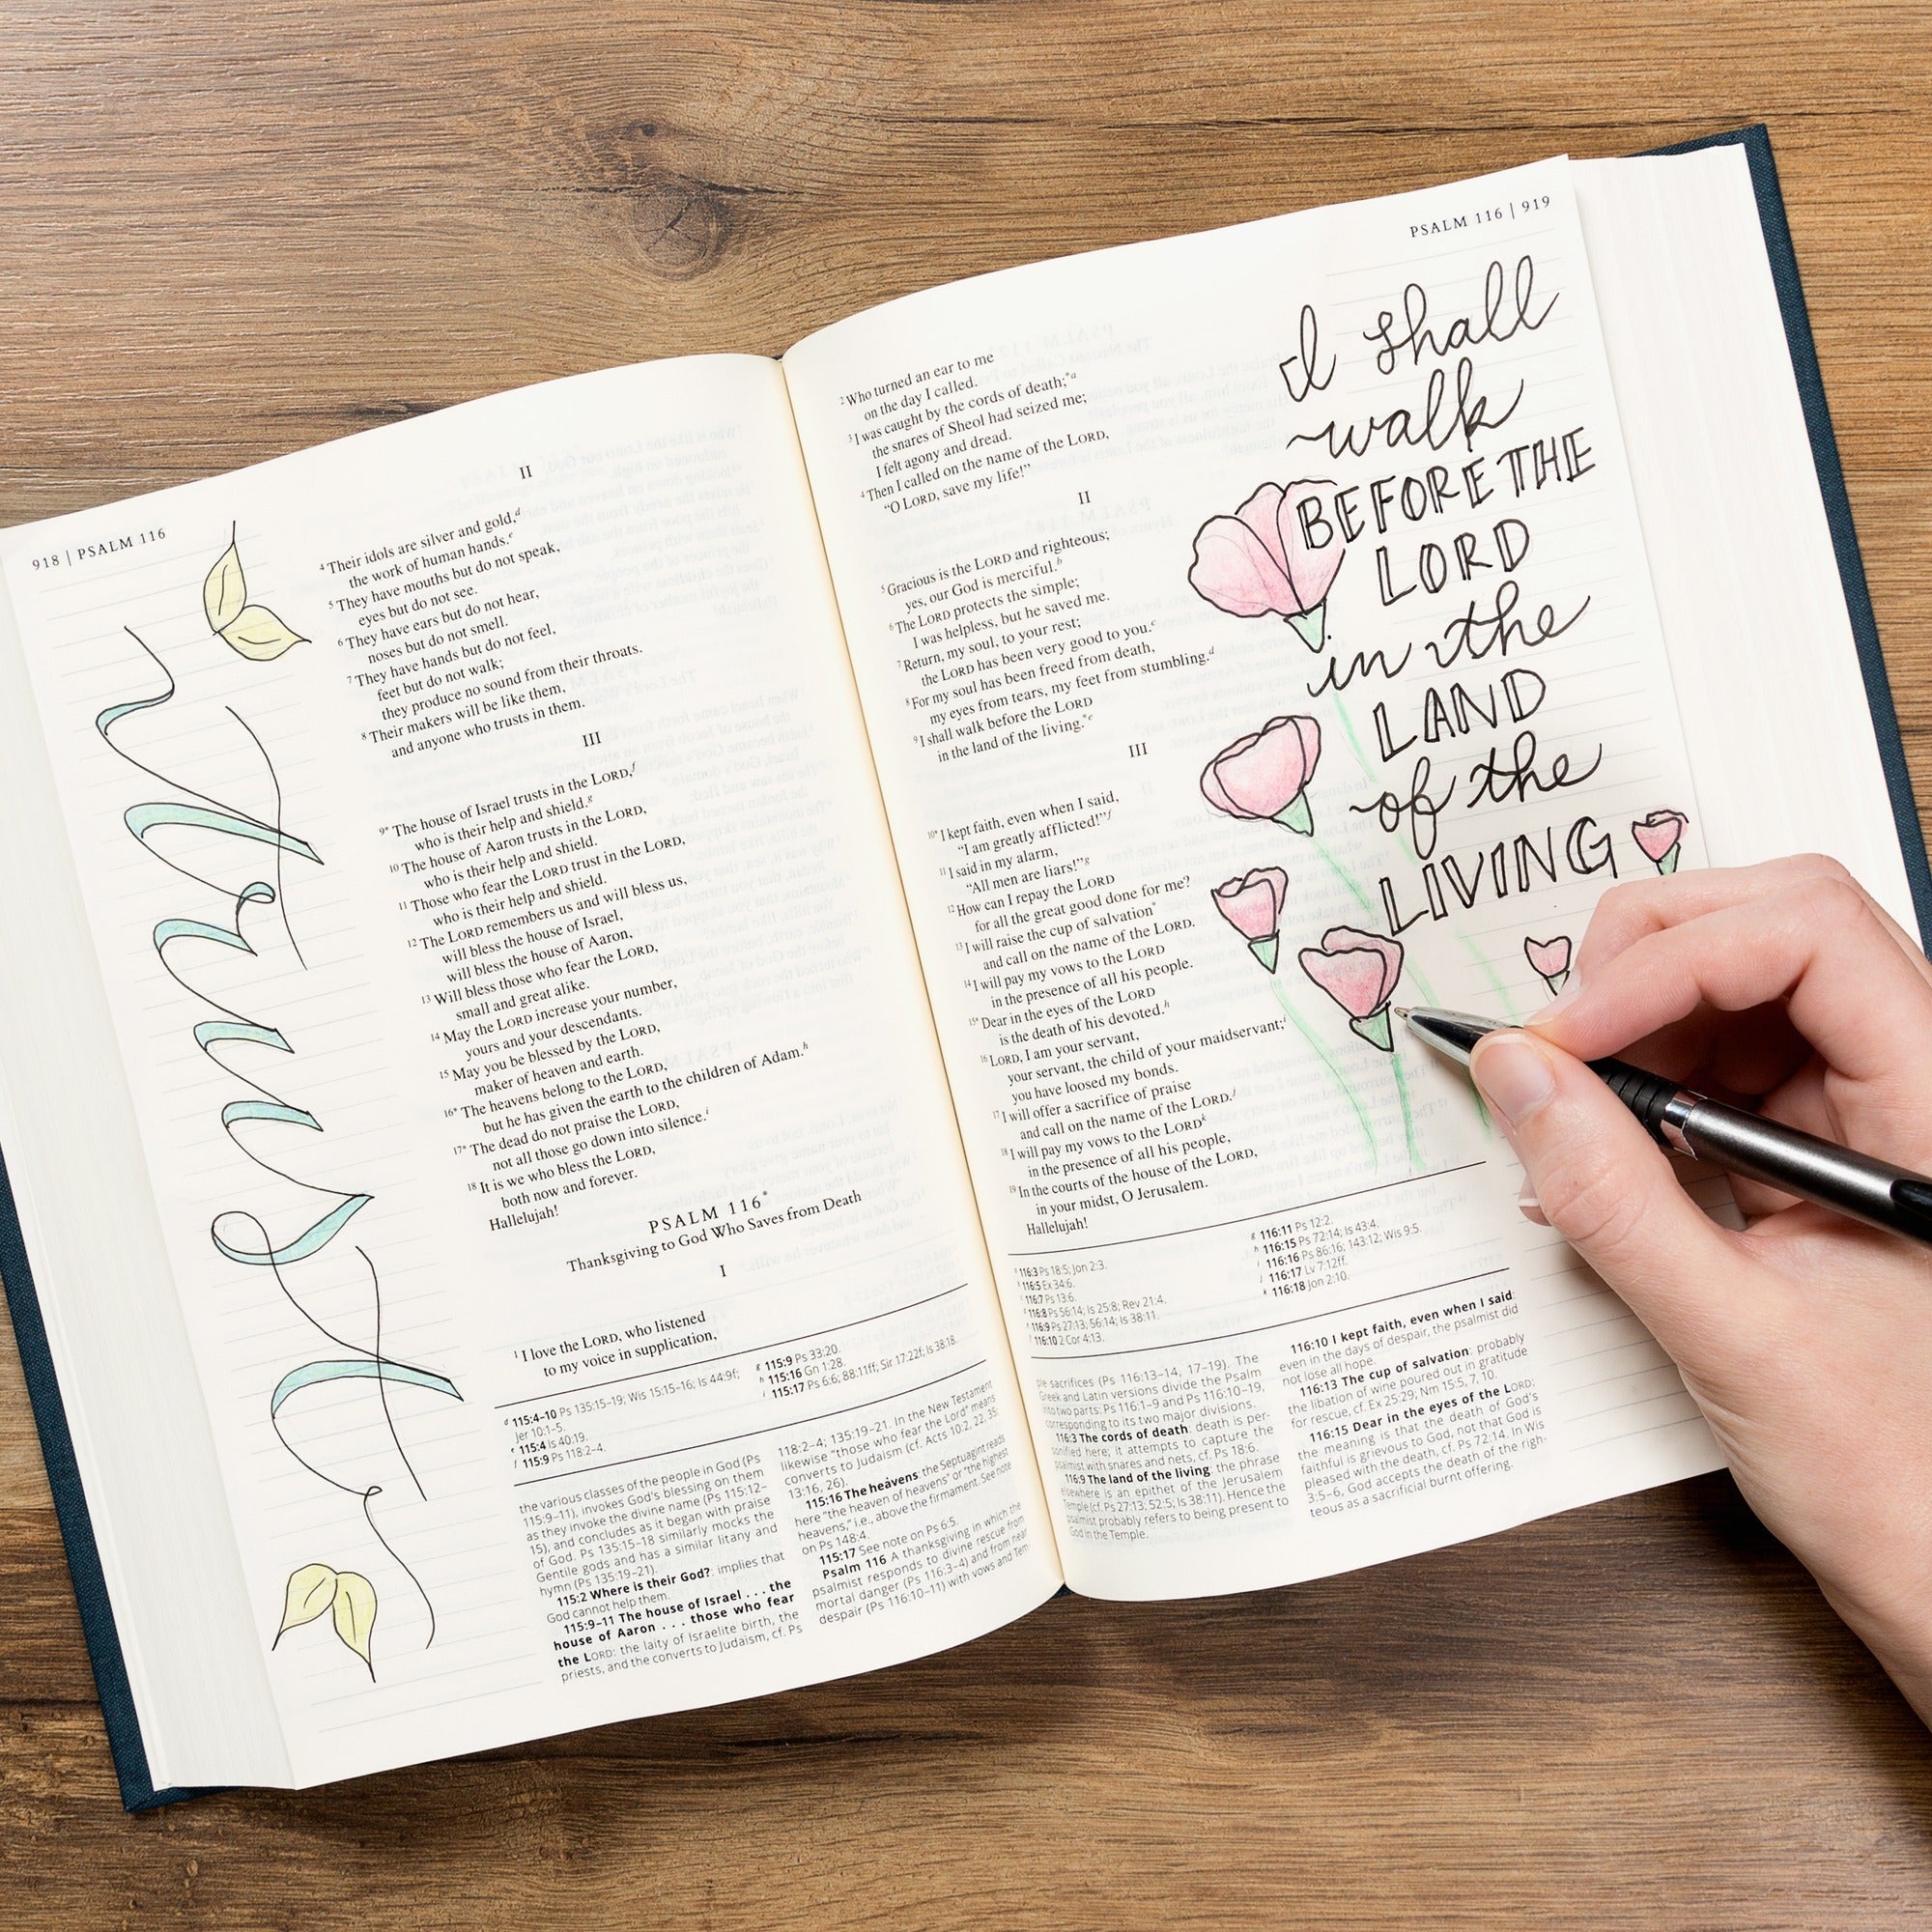 918 | PSALM 116
II
4 Their idols are silver and gold,d
the work of human hands.e
5 They have mouths but do not speak,
eyes but do not see.
6 They have ears but do not hear,
noses but do not smell.
7 They have hands but do not feel,
feet but do not walk;
they produce no sound from their throats.
8 Their makers will be like them,
and anyone who trusts in them.
III
9* The house of Israel trusts in the LORD,f
who is their help and shield.g
10 The house of Aaron trusts in the LORD,
who is their help and shield.
11 Those who fear the LORD trust in the LORD,
who is their help and shield.
12 The LORD remembers us and will bless us,
will bless the house of Israel,
will bless the house of Aaron,
13 Will bless those who fear the LORD,
small and great alike.
14 May the LORD increase your number,
yours and your descendants.
15 May you be blessed by the LORD,
maker of heaven and earth.
16* The heavens belong to the LORD,
but he has given the earth to the children of Adam.h
17* The dead do not praise the LORD,
not all those go down into silence.i
18 It is we who bless the LORD,
both now and forever.
Hallelujah!
PSALM 116*
Thanksgiving to God Who Saves from Death
I
1 I love the LORD, who listened
to my voice in supplication,
d 115:4–10 Ps 135:15–19; Wis 15:15–16; Is 44:9f;
Jer 10:1–5.
e 115:4 Is 40:19.
f 115:9 Ps 118:2–4.
g 115:9 Ps 33:20.
h 115:16 Gn 1:28.
i 115:17 Ps 6:6; 88:11ff; Sir 17:22f; Is 38:18.
the various classes of the people in God (Ps
115:9–11), invokes God's blessing on them
as they invoke the divine name (Ps 115:12–
15), and concludes as it began with praise
of God. Ps 135:15–18 similarly mocks the
Gentile gods and has a similar litany and
hymn (Ps 135:19–21).
115:2 Where is their God?: implies that
God cannot help them.
115:9–11 The house of Israel . . . the
house of Aaron . . . those who fear
the LORD: the laity of Israelite birth, the
priests, and the converts to Judaism, cf. Ps
118:2–4; 135:19–21. In the New Testament
likewise "those who fear the Lord" means
converts to Judaism (cf. Acts 10:2, 22, 35;
13:16, 26).
115:16 The heavens: the Septuagint reads
here "the heaven of heavens" or "the highest
heavens," i.e., above the firmament. See note
on Ps 148:4.
115:17 See note on Ps 6:5.
Psalm 116 A thanksgiving in which the
psalmist responds to divine rescue from
mortal danger (Ps 116:3–4) and from near
despair (Ps 116:10–11) with vows and Tem-
PSALM 116 | 919
2 Who turned an ear to me
on the day I called.
3 I was caught by the cords of death;*a
the snares of Sheol had seized me;
I felt agony and dread.
4 Then I called on the name of the LORD,
"O LORD, save my life!"
II
5 Gracious is the LORD and righteous;
yes, our God is merciful.b
6 The LORD protects the simple;
I was helpless, but he saved me.
7 Return, my soul, to your rest;
the LORD has been very good to you.c
8 For my soul has been freed from death,
my eyes from tears, my feet from stumbling.d
9 I shall walk before the LORD
in the land of the living.*e
III
10* I kept faith, even when I said,
"I am greatly afflicted!"f
11 I said in my alarm,
"All men are liars!"g
12 How can I repay the LORD
for all the great good done for me?
13 I will raise the cup of salvation*
and call on the name of the LORD.
14 I will pay my vows to the LORD
in the presence of all his people.
15* Dear in the eyes of the LORD
is the death of his devoted.h
16 LORD, I am your servant,
your servant, the child of your maidservant;i
you have loosed my bonds.
17 I will offer a sacrifice of praise
and call on the name of the LORD.j
18 I will pay my vows to the LORDk
in the presence of all his people,
19 In the courts of the house of the LORD,
in your midst, O Jerusalem.
Hallelujah!
I shall
walk
BEFORE THE
LORD
in the
LAND
of the
LIVING
116:3 Ps 18:5; Jon 2:3.
116:5 Ex 34:6.
116:7 Ps 13:6.
116:8 Ps 56:14; Is 25:8; Rev 21:4.
116:9 Ps 27:13; 56:14; Is 38:11.
116:10 2 Cor 4:13.
g 116:11 Ps 12:2.
h 116:15 Ps 72:14; Is 43:4.
i 116:16 Ps 86:16; 143:12; Wis 9:5.
j 116:17 Lv 7:12ff.
k 116:18 Jon 2:10.
ple sacrifices (Ps 116:13–14, 17–19). The
Greek and Latin versions divide the Psalm
into two parts: Ps 116:1–9 and Ps 116:10–19,
corresponding to its two major divisions.
116:3 The cords of death: death is per-
sonified here; it attempts to capture the
psalmist with snares and nets, cf. Ps 18:6.
116:9 The land of the living: the phrase
elsewhere is an epithet of the Jerusalem
Temple (cf. Ps 27:13; 52:5; Is 38:11). Hence the
psalmist probably refers to being present to
God in the Temple.
116:10 I kept faith, even when I said:
even in the days of despair, the psalmist did
not lose all hope.
116:13 The cup of salvation: probably
the libation of wine poured out in gratitude
for rescue, cf. Ex 25:29; Nm 15:5, 7, 10.
116:15 Dear in the eyes of the LORD:
the meaning is that the death of God's
faithful is grievous to God, not that God is
pleased with the death, cf. Ps 72:14. In Wis
3:5–6, God accepts the death of the righ-
teous as a sacrificial burnt offering.